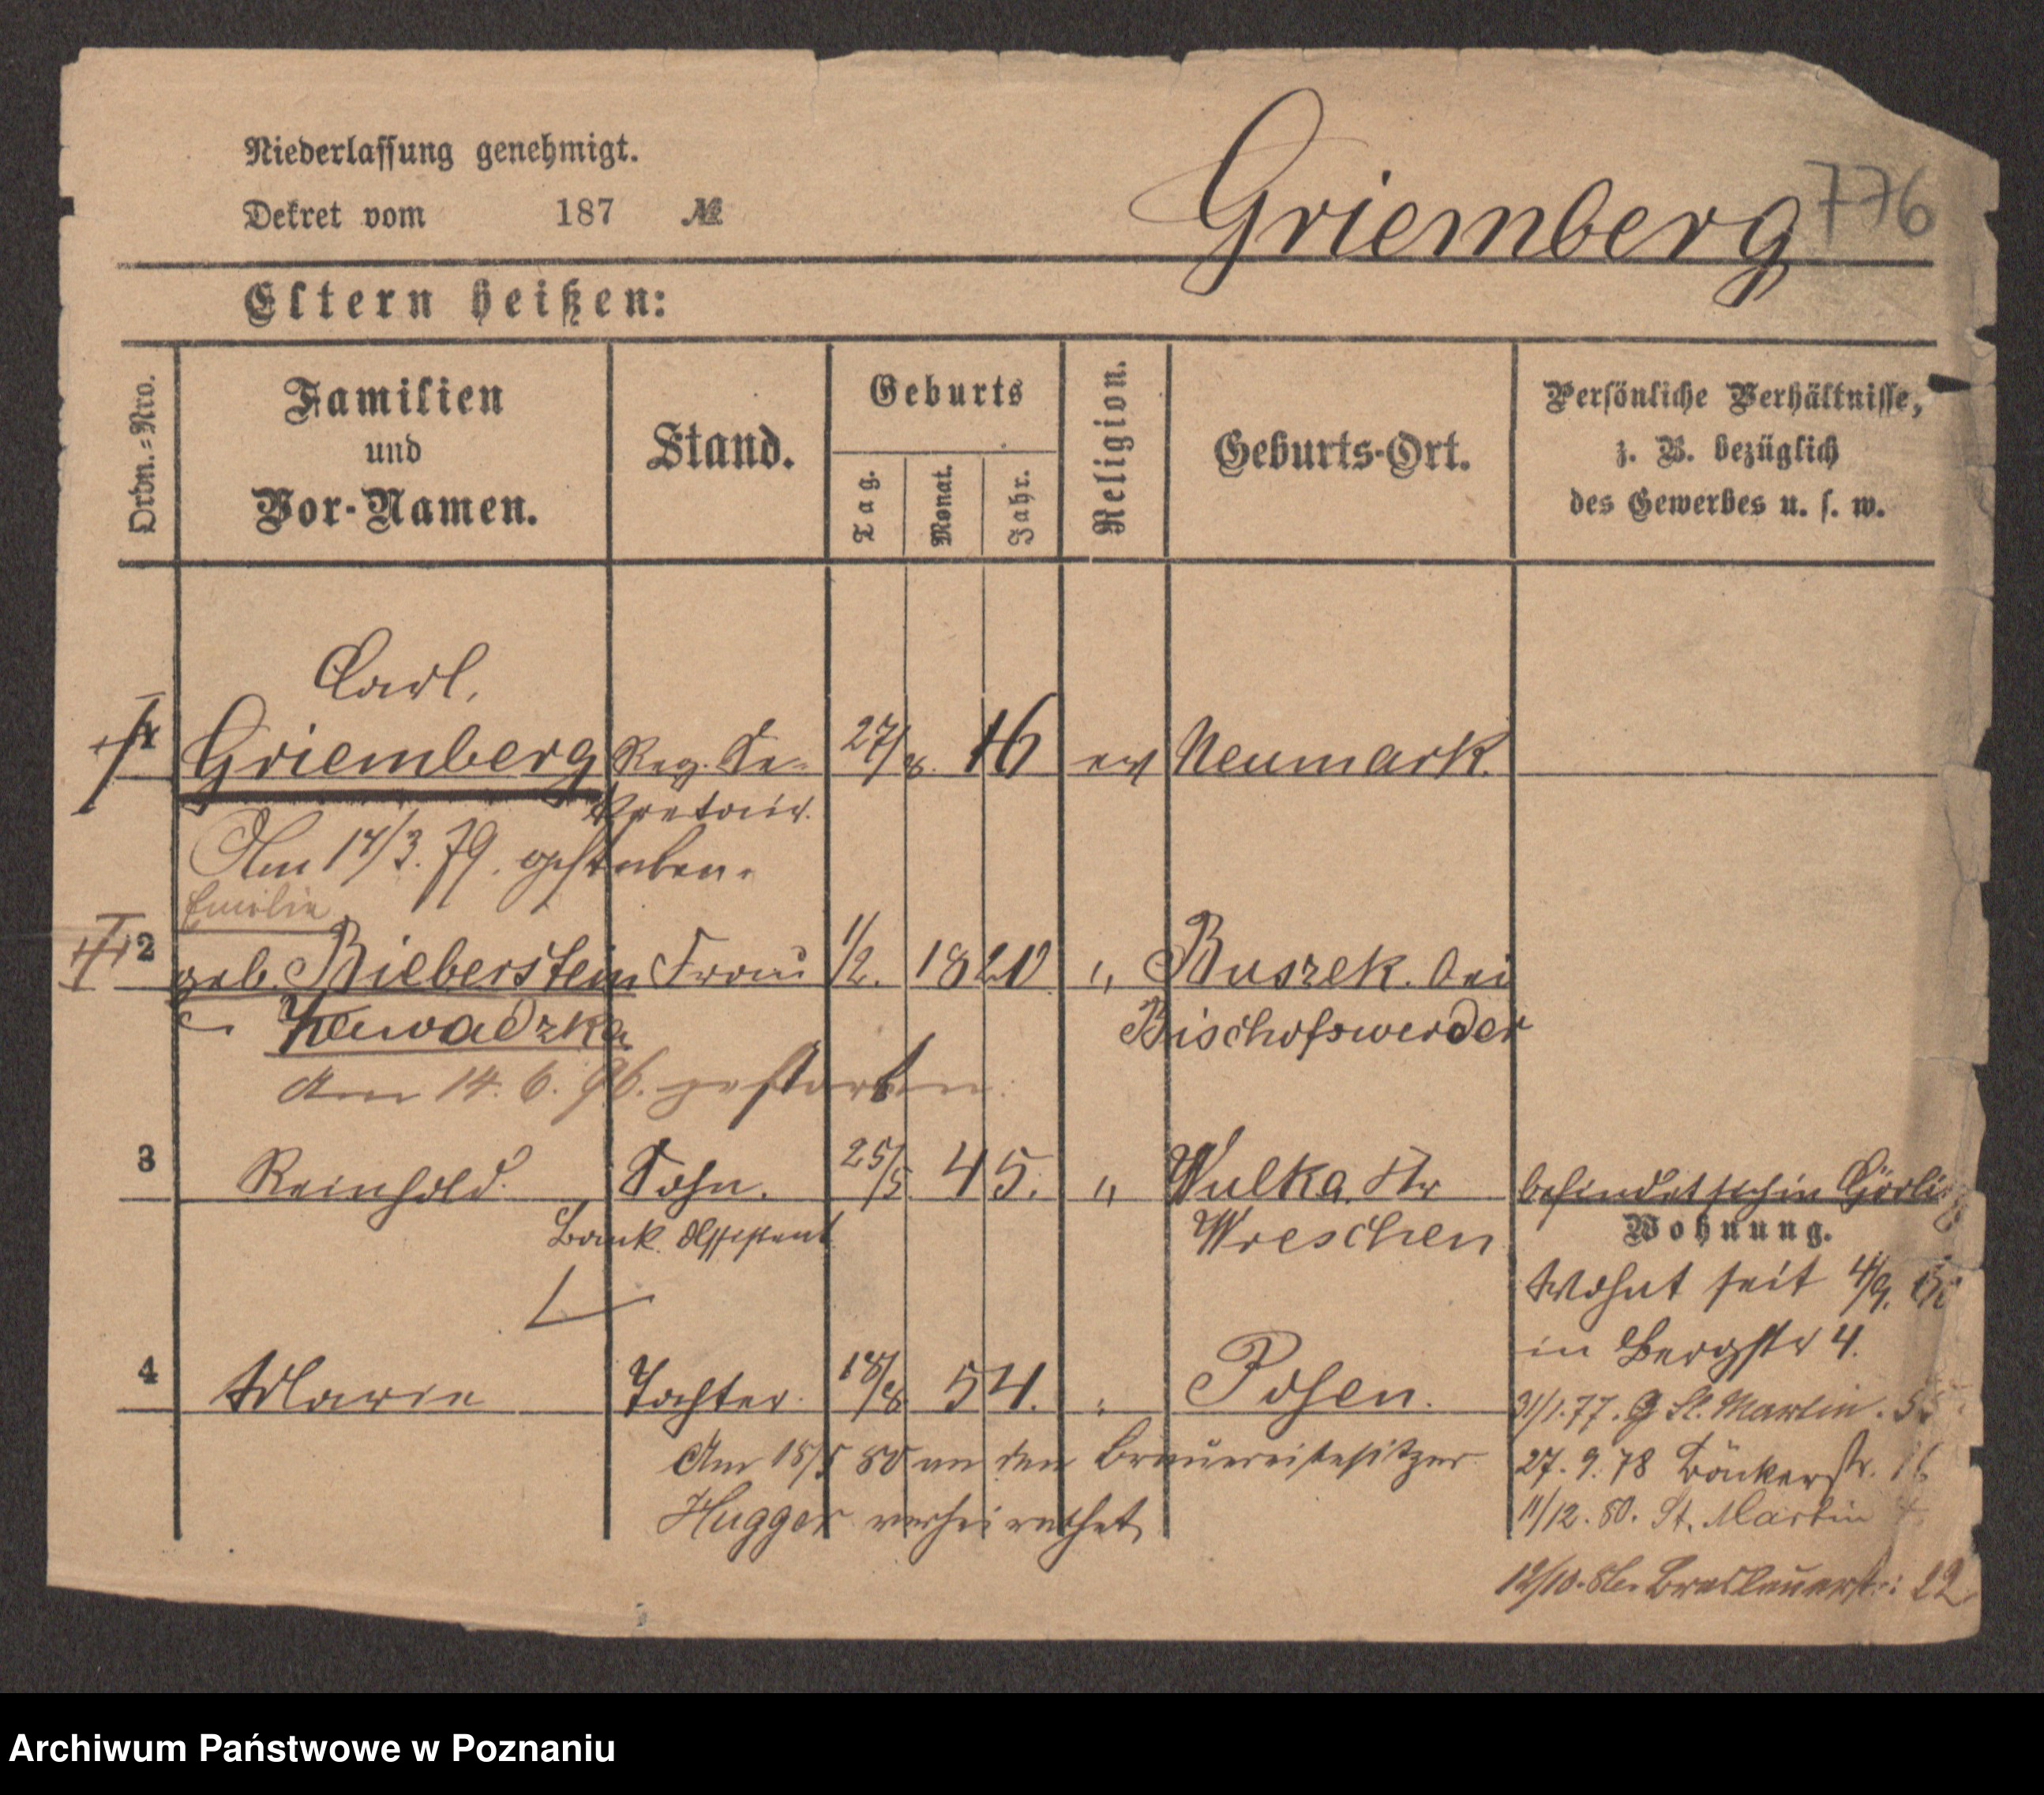 Niederlassung genehmigt.
Dekret vom 187 №
Griemberg 776
Eltern heißen:
Ordn.-Nro.
Familien
und
Vor-Namen.
Stand.
Geburts
Tag.
Monat.
Jahr.
Religion.
Geburts-Ort.
Persönliche Verhältnisse,
z. B. bezüglich
des Gewerbes u. s. w.
Carl.
1 Griemberg Reg. Se- 27/8. 16 ev Neumark.
kretair.
Am 17/3. 79. gestorben.
Emilie
2 geb. Bieberstein Frau 1/2. 1820 " Buszek. bei
Zawadzka Bischofswerder
Am 14. 6. 96. gestorben.
3 Reinhold. Sohn. 25/5 45. " Wulka. Kr befindet sich in Görlitz
Bank. Assistent Wreschen
Wohnung.
Wohnt seit 4/9.
in Bergstr 4.
4 Marie Tochter. 18/8 54. " Posen.
31/1.77. St. Martin.
Am 18/5 80 an den Brauereibesitzer
27. 9. 78 Bäckerstr. 16
Hugger verheirathet
11/12. 80. St. Martin
12/10. Breslauerstr: 22
Archiwum Państwowe w Poznaniu